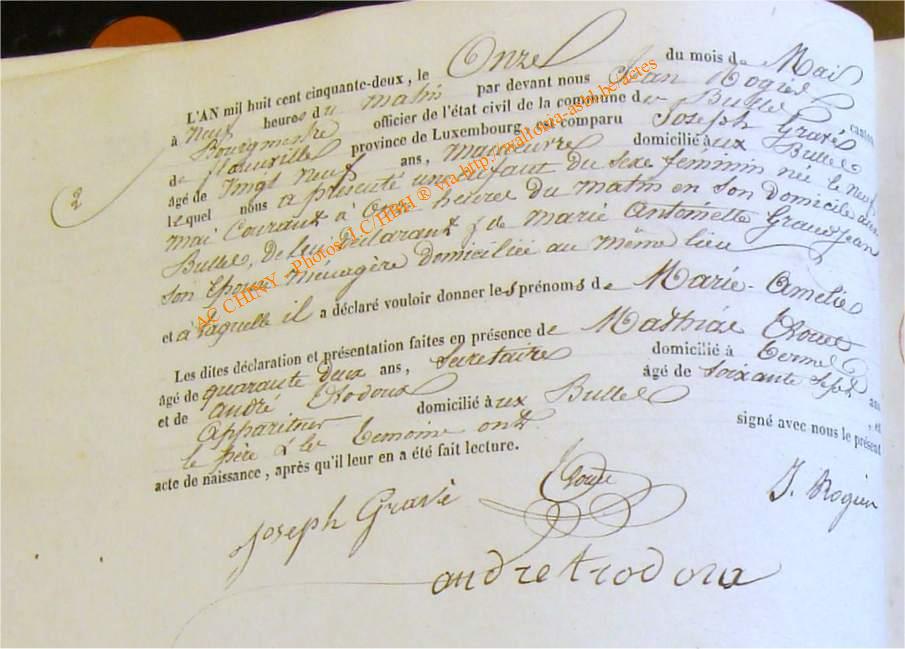 L'AN mil huit cent cinquante-deux, le Onze du mois de Mai
à neuf heures du matin par devant nous Jean Rogier
Bourgmestre officier de l'état civil de la commune de Bulles canton
de florenville province de Luxembourg, est comparu Joseph Gravé
âgé de Vingt neuf ans, manoeuvre domicilié aux Bulles
lequel nous a présenté un enfant du sexe féminin née le neuf
mai Courant à onze heures du matin en son domicile aux
Bulles, de lui déclarant & de marie Antoinette Grandjean
son Epouse ménagère domiciliée au même lieu
et à laquelle il a déclaré vouloir donner les prénoms de Marie-Amelie
Les dites déclaration et présentation faites en présence de Mathias
âgé de quarante deux ans, Secretaire domicilié à termes
et de andré âgé de soixante sept ans
Appariteur domicilié aux Bulles, et
le père & les temoins ont signé avec nous le présent
acte de naissance, après qu'il leur en a été fait lecture.
Joseph Gravé
J. Rogier
andre
2
AC CHINY - Photos LC/HBH ® via http://wallonia-asbl.be/actes